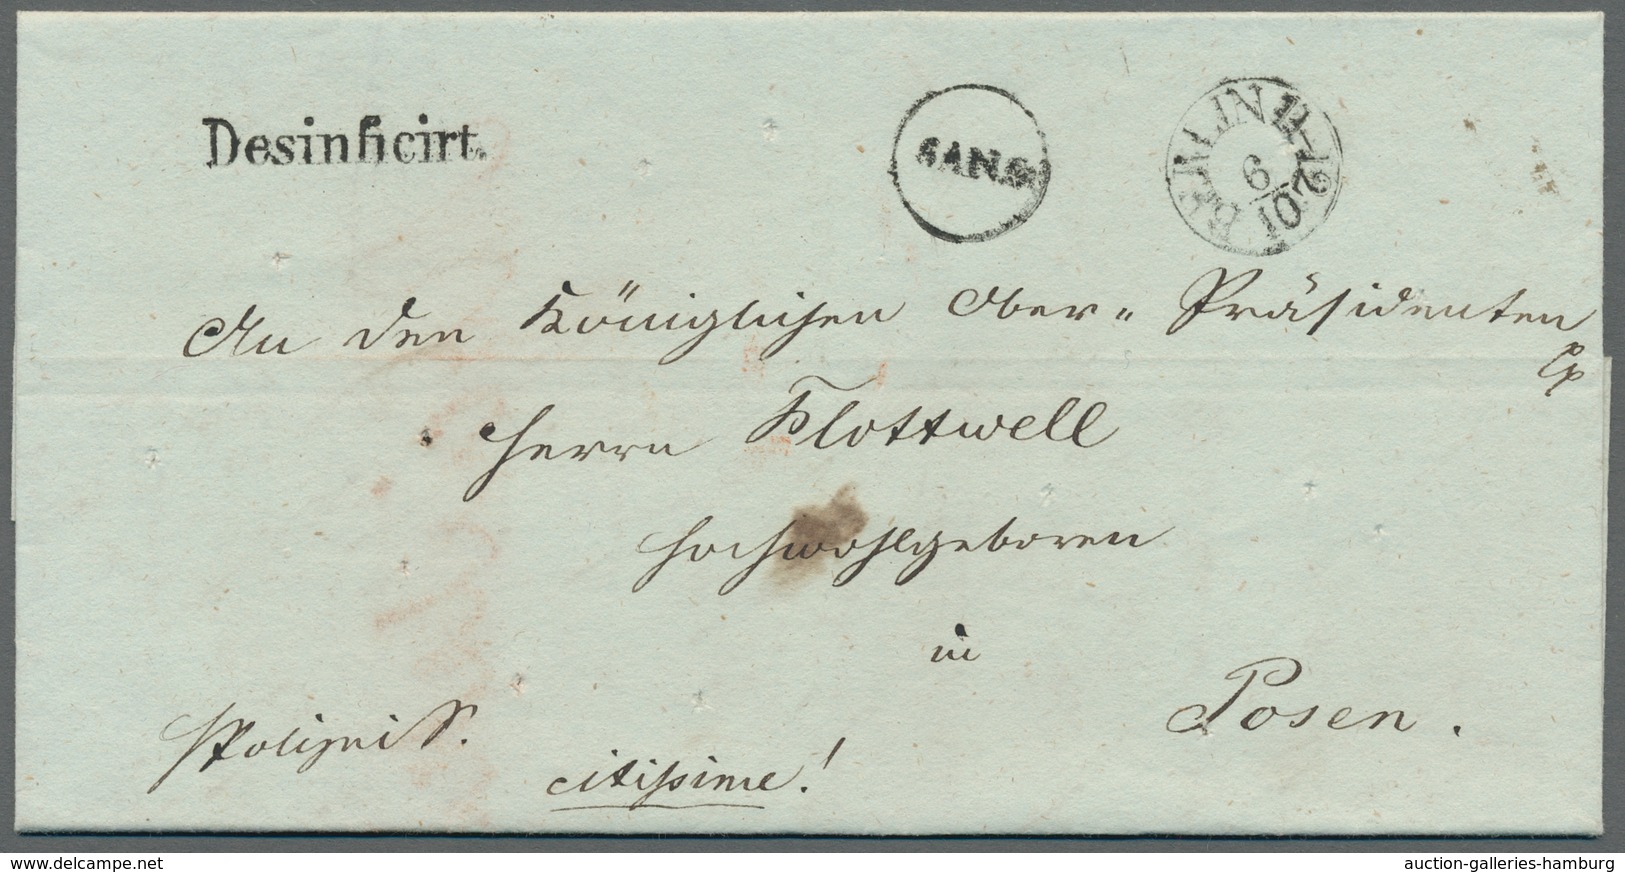 Desinficirt.
SANS.
BERLIN 11-12
6
10
An den Königlichen Ober= Präsidenten
Herrn Flottwell
Hochwohlgeboren
in
Posen.
citissime!
www.delcampe.net
auction-galleries-hamburg